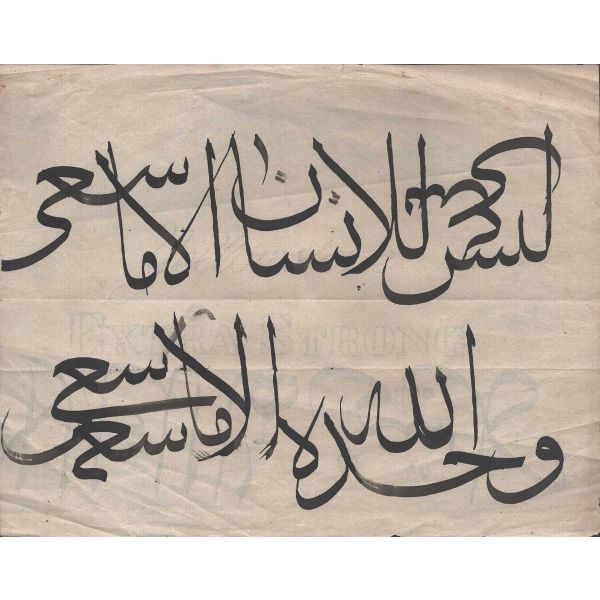 ليس للانسان الا ما سعى
EXTRA STRONG
وحده الله الا ما سعى سعى